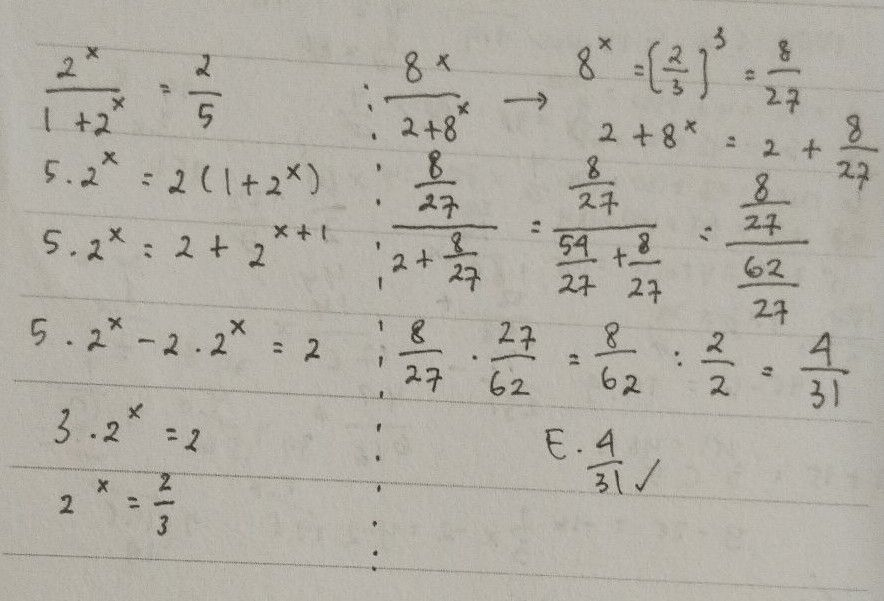 2^x / (1 + 2^x) = 2/5
5 . 2^x = 2 (1 + 2^x)
5 . 2^x = 2 + 2^(x+1)
5 . 2^x - 2 . 2^x = 2
3 . 2^x = 2
2^x = 2/3
8^x / (2 + 8^x) → 8^x = (2/3)^3 = 8/27
2 + 8^x = 2 + 8/27
(8/27) / (2 + 8/27) = (8/27) / (54/27 + 8/27) = (8/27) / (62/27)
8/27 . 27/62 = 8/62 : 2/2 = 4/31
E. 4/31 ✓